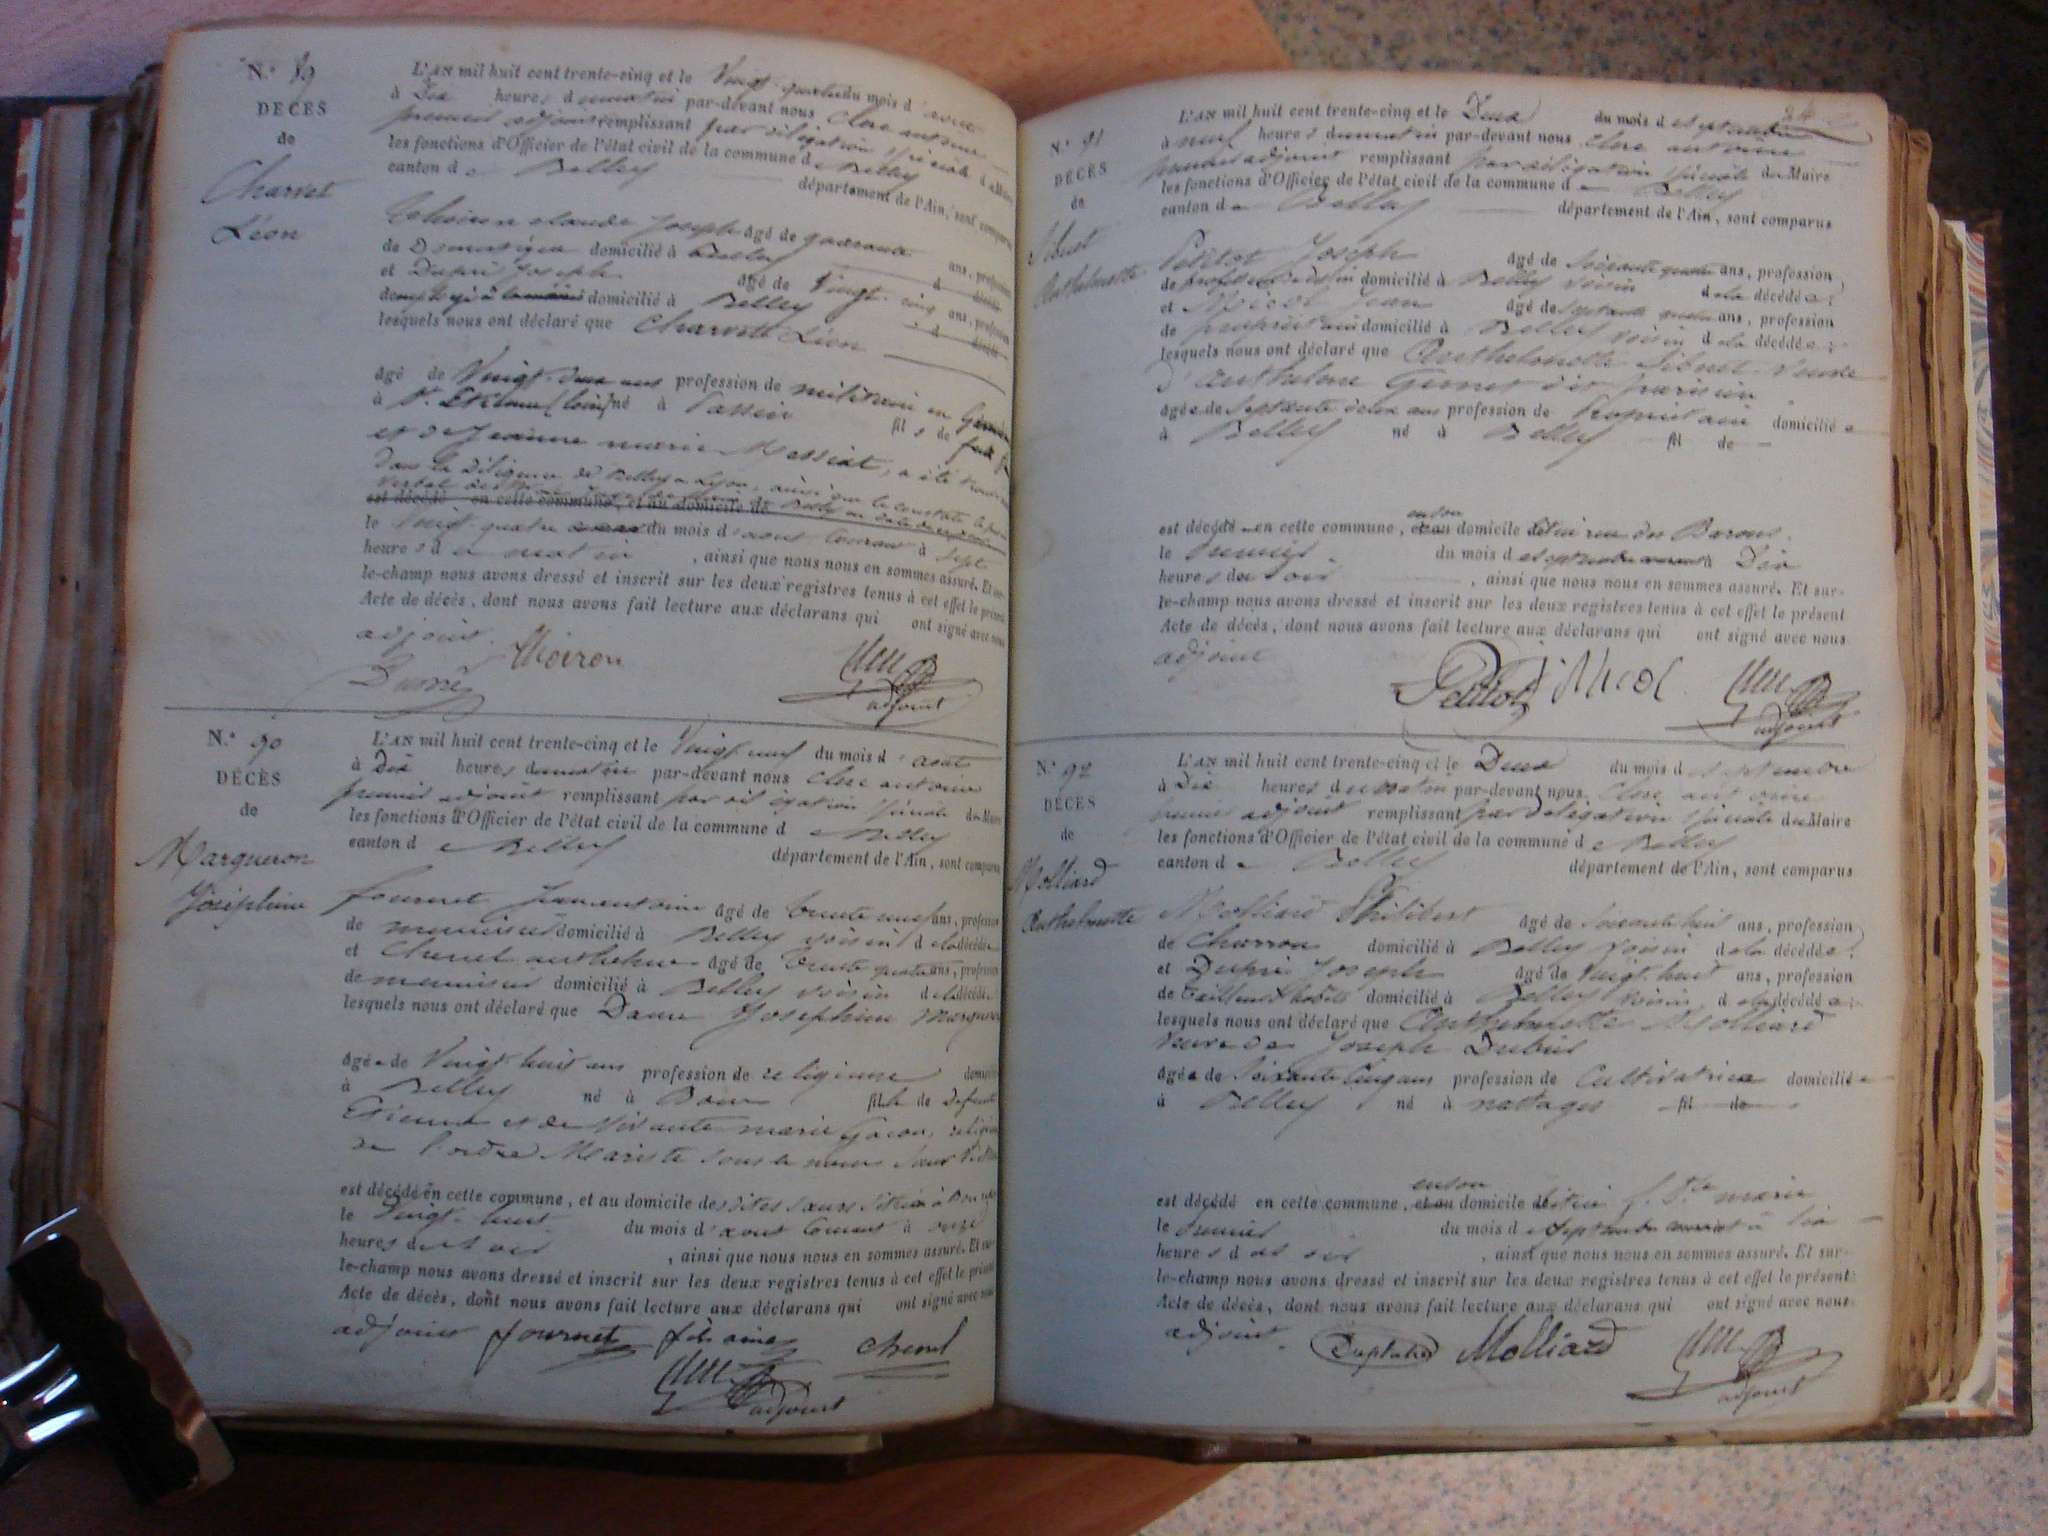 N.° 89
DÉCÈS
de
Charvet
Léon
L'AN mil huit cent trente-cinq et le Vingt-quatre du mois d'août
à Dix heures du matin par-devant nous Clerc antoine
premier adjoint remplissant par délégation spéciale du Maire
les fonctions d'Officier de l'état civil de la commune de Belley
canton de Belley département de l'Ain, sont comparus
claude Joseph âgé de quarante ans, profession
de domicilié à Belley
et Dupré Joseph âgé de Vingt-cinq ans, profession
domicilié à Belley
lesquels nous ont déclaré que Charvet Léon
âgé de Vingt-deux ans profession de militaire en
à né à fils de
et de Jeanne marie Messiat, a été
dans la Diligence de Belley a Lyon, ainsi que le constate le
est décédé en cette commune, et au domicile de
le Vingt-quatre du mois d'août courant à Sept
heures du matin, ainsi que nous nous en sommes assuré. Et sur-
le-champ nous avons dressé et inscrit sur les deux registres tenus à cet effet le présent
Acte de décès, dont nous avons fait lecture aux déclarans qui ont signé avec nous
adjoint.
adjoint
N.° 90
DÉCÈS
de
Marqueron
Joséphine
L'AN mil huit cent trente-cinq et le Vingt-neuf du mois d'août
à Dix heures du matin par-devant nous Clerc antoine
premier adjoint remplissant par délégation spéciale du Maire
les fonctions d'Officier de l'état civil de la commune de Belley
canton de Belley département de l'Ain, sont comparus
fournet Jean antoine âgé de trente neuf ans, profession
de menuisier domicilié à Belley voisin de la décédée
et Chenel anthelme âgé de trente quatre ans, profession
de menuisier domicilié à Belley voisin de la décédée
lesquels nous ont déclaré que Dame Joséphine Marqueron
âgée de Vingt huit ans profession de religieuse
à Belley né à fille de Defunt
Etienne et de Vivante marie
de l'ordre Mariste sous le nom de Sœur
est décédé en cette commune, et au domicile desdites sœurs
le Vingt-huit du mois d'août courant à onze
heures du soir, ainsi que nous nous en sommes assuré. Et sur-
le-champ nous avons dressé et inscrit sur les deux registres tenus à cet effet le présent
Acte de décès, dont nous avons fait lecture aux déclarans qui ont signé avec nous
adjoint fournet fils ainé Chenel
adjoint
N.° 91
DÉCÈS
de
Anthelmette
L'AN mil huit cent trente-cinq et le Deux du mois de septembre
à neuf heures du matin par-devant nous Clerc antoine
premier adjoint remplissant par délégation spéciale du Maire
les fonctions d'Officier de l'état civil de la commune de Belley
canton de Belley département de l'Ain, sont comparus
Petitot Joseph âgé de soixante quatre ans, profession
de professeur de dessin domicilié à Belley voisin de la décédée
et Nicod Jean âgé de septante quatre ans, profession
de propriétaire domicilié à Belley voisin de la décédée
lesquels nous ont déclaré que Anthelmette Veuve
d'anthelme dit parisien
âgée de septante deux ans profession de Propriétaire domiciliée
à Belley né à Belley fil de
est décédée en cette commune, en son et au domicile rue des Barons.
le premier du mois de septembre à Dix
heures du soir, ainsi que nous nous en sommes assuré. Et sur-
le-champ nous avons dressé et inscrit sur les deux registres tenus à cet effet le présent
Acte de décès, dont nous avons fait lecture aux déclarans qui ont signé avec nous
adjoint
Petitot Nicod
adjoint
N.° 92
DÉCÈS
de
Molliard
Anthelmette
L'AN mil huit cent trente-cinq et le Deux du mois de septembre
à Dix heures du matin par-devant nous Clerc antoine
premier adjoint remplissant par délégation spéciale du Maire
les fonctions d'Officier de l'état civil de la commune de Belley
canton de Belley département de l'Ain, sont comparus
Molliard Philibert âgé de soixante huit ans, profession
de Charron domicilié à Belley voisin de la décédée
et Dupré Joseph âgé de Vingt-huit ans, profession
de tailleur d'habits domicilié à Belley voisin de la décédée
lesquels nous ont déclaré que Anthelmette Molliard
Veuve de Joseph
âgée de Soixante Cinq ans profession de Cultivatrice domiciliée
à Belley né à nattages fil de
est décédé en cette commune, en son et au domicile f. Ste marie
le premier du mois de Septembre à Dix
heures du soir, ainsi que nous nous en sommes assuré. Et sur-
le-champ nous avons dressé et inscrit sur les deux registres tenus à cet effet le présent
Acte de décès, dont nous avons fait lecture aux déclarans qui ont signé avec nous
adjoint. Molliard
adjoint